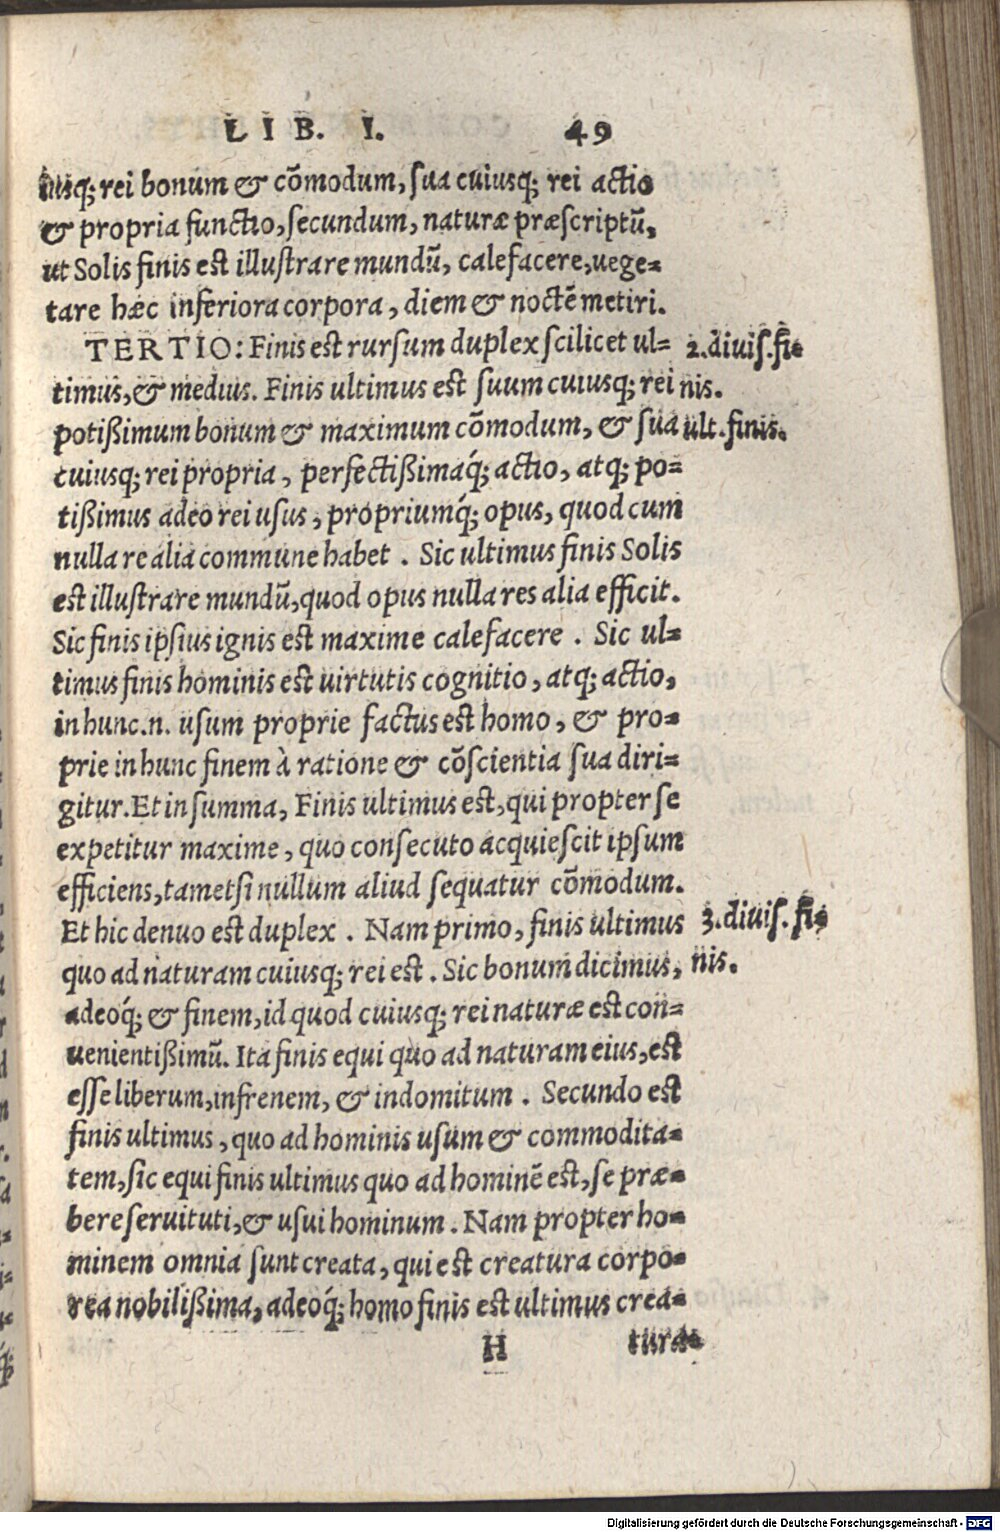 LIB. I. 49
iusq; rei bonum & cõmodum, sua cuiusq; rei actio
& propria functio, secundum, naturæ præscriptũ,
ut Solis finis est illustrare mundũ, calefacere, uege=
tare hæc inferiora corpora, diem & noctẽ metiri.
TERTIO: Finis est rursum duplex scilicet ul= 2.diuis.fi=
timus, & medius. Finis ultimus est suum cuiusq; rei nis.
potißimum bonum & maximum cõmodum, & sua ult.finis.
cuiusq; rei propria, perfectißimaq́; actio, atq; po=
tißimus adeo rei usus, propriumq́; opus, quod cum
nulla re alia commune habet. Sic ultimus finis Solis
est illustrare mundũ, quod opus nulla res alia efficit.
Sic finis ipsius ignis est maxime calefacere. Sic ul=
timus finis hominis est uirtutis cognitio, atq; actio,
in hunc.n. usum proprie factus est homo, & pro=
prie in hunc finem à ratione & cõscientia sua diri=
gitur. Et in summa, Finis ultimus est, qui propter se
expetitur maxime, quo consecuto acquiescit ipsum
efficiens, tametsi nullum aliud sequatur cõmodum.
Et hic denuo est duplex. Nam primo, finis ultimus 3.diuis.fi=
quo ad naturam cuiusq; rei est. Sic bonum dicimus, nis.
adeoq́; & finem, id quod cuiusq; rei naturæ est con=
uenientißimũ. Ita finis equi quo ad naturam eius, est
esse liberum, infrenem, & indomitum. Secundo est
finis ultimus, quo ad hominis usum & commodita=
tem, sic equi finis ultimus quo ad hominẽ est, se præ=
bere seruituti, & usui hominum. Nam propter ho=
minem omnia sunt creata, qui est creatura corpo=
rea nobilißima, adeoq́; homo finis est ultimus crea=
H tura=
Digitalisierung gefördert durch die Deutsche Forschungsgemeinschaft - DFG